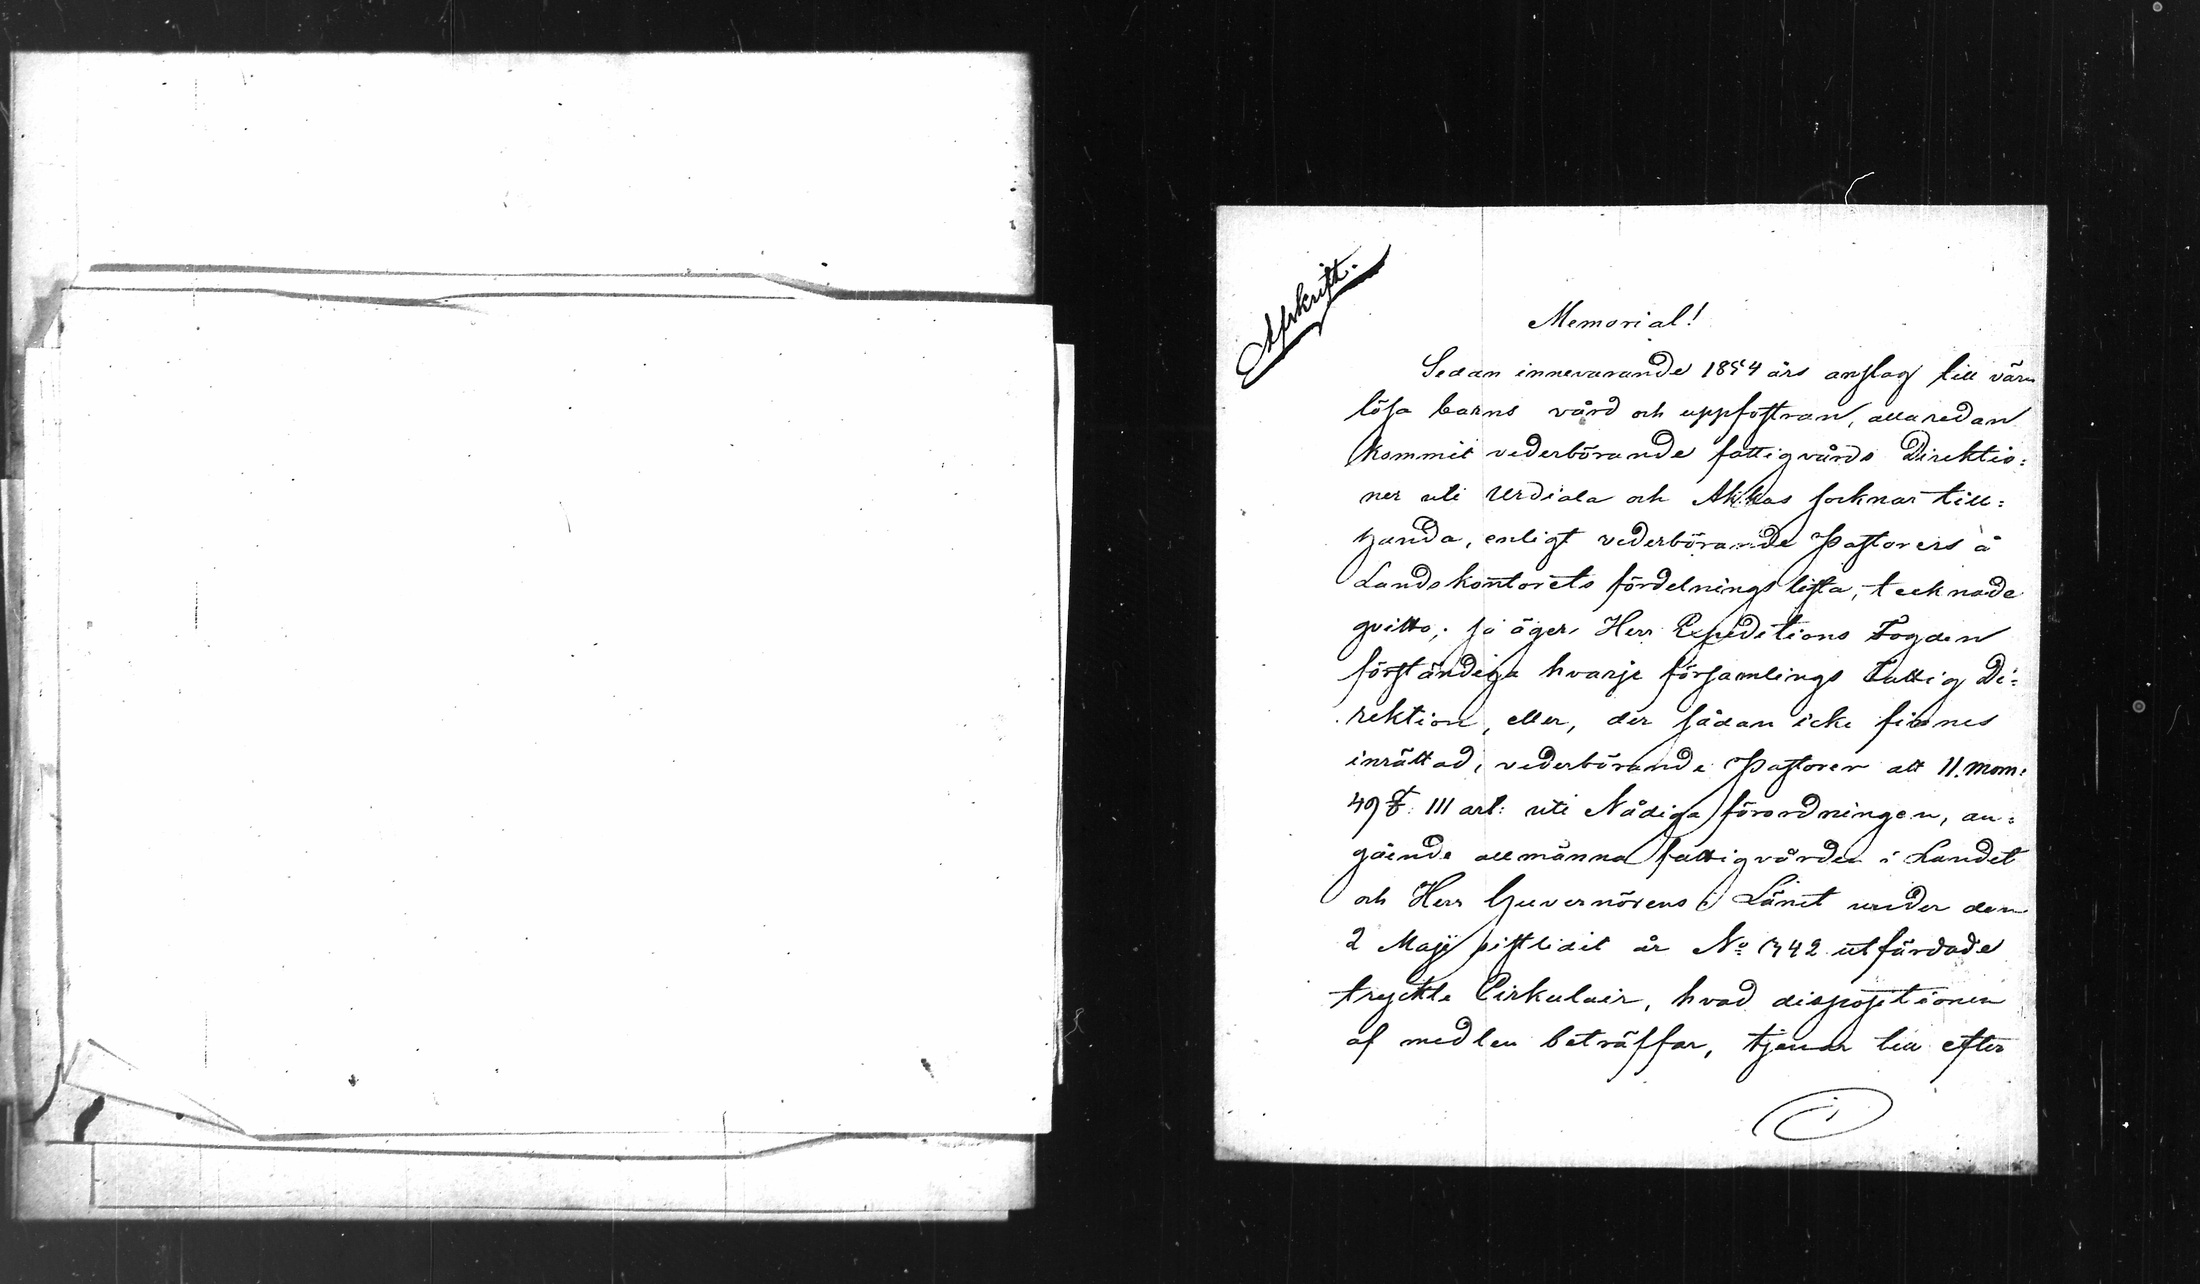 Afskrift.
Memorial!
Sedan innevarande 1854 års anslag till värn
lösa barns vård och uppfostran, allaredan
kommit vederbörande fattigvårds Direktio:
ner uti Urdiala och Akkas socknar till:
handa, enligt vederbörande Pastorers å
Landskontorets fördelnings lista, tecknade
qvitto; så äger Herr Expeditions Fogden
förständiga hvarje församlings Fattig Di:
rektion, eller, der sådan icke finnes
inrättad, vederbörande Pastorer att 11. mom:
49 § III art: uti Nådiga förordningen, an:
gående allmänna fattigvården i Landet
och Herr Guvernörens i Länet under den
2 Maji sistlidit år No 342 utfärdade
tryckte Cirkulair, hvad dispositionen
af medlen beträffar, tjenar till efter